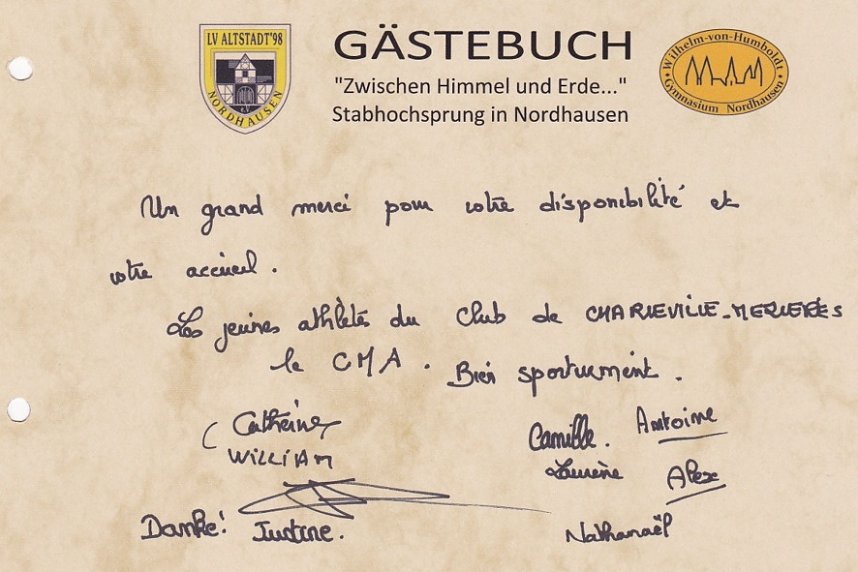 LV ALTSTADT'98
NORDHAUSEN
e.V
GÄSTEBUCH
"Zwischen Himmel und Erde..."
Stabhochsprung in Nordhausen
Wilhelm-von-Humboldt
Gymnasium Nordhausen
Un grand merci pour votre disponibilité et
votre accueil.
Les jeunes athlètes du Club de CHARLEVILLE-MEZIERES
le CMA. Bien sportivement.
Catherine
WILLIAM
Camille. Antoine
Laurène Alex
Danke! Justine.
Nathanaël